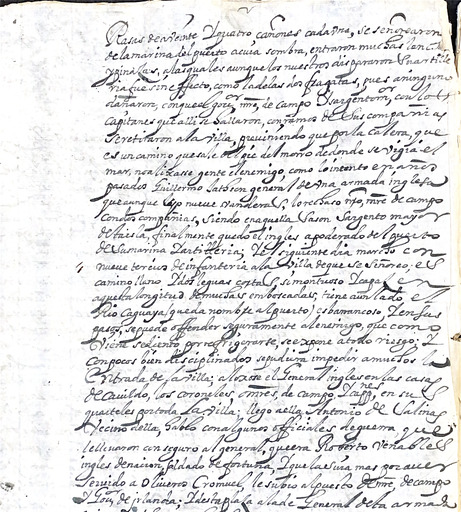 Rasas de a veinte y quatro, cañones cada vna, se señorearon
de la marina del puerto a cuia sombra, entraron muchas lanchas
y pinazas, a las quales aunque los nuestros dispararon su artille
ria fue sin effecto, como la de las dos fragatas, pues a ninguna
dañaron, con que el gouor, mre, de campo y sargentomor, con los
capitanes que alli se hallaron, con ramos de sus compañias
se retiraron a la villa, preuiniendo que por la Calera, que
es vn camino que sale del pie del morro de donde se vigia el
mar, no alijasse gente el enemigo, como lo intento en años
pasados Guillermo Jatson general de vna armada inglesa
que aunque vandera, lo rechaso nro, mre de campo
con dos compañias, siendo en aquella sason sargento mayor
de la isla, finalmente quedo el ingles apoderado del puerto
de su marina y artilleria, y el siguiente dia marcho con
nueue tercios de infanteria a la villa de que se señoreo, es
camino llano, y dos leguas cortas, si montuoso y capaz en
aquella longitud de muchas emboscadas, tiene a un lado el
Rio Caguaya (que da nombre al puerto) es barrancoso, y en sus
pasos, se puede offender seguramente al enemigo, que como
viene sediento por refrigerarse, se expone a todo riesgo; y
con pocos bien disciplinados se pudiera impedir a muchos la
entrada de la villa; aloxose el General ingles en las casas
de cauildo, los coroneles, mres, de campo, y cappnes, en sus
quarteles por toda la villa; llego a ella Antonio de Salinas
vecino della, hablo con algunos officiales de guerra, que
le lleuaron con seguro al general, que era Roberto Venables
ingles de nacion, soldado de fortuna, y que la suia mas por auer
seruido a Oliueros Cromuel, le subio al puesto de mre, de campo
y Gour, de irlanda, y desta para a la de General desta armada